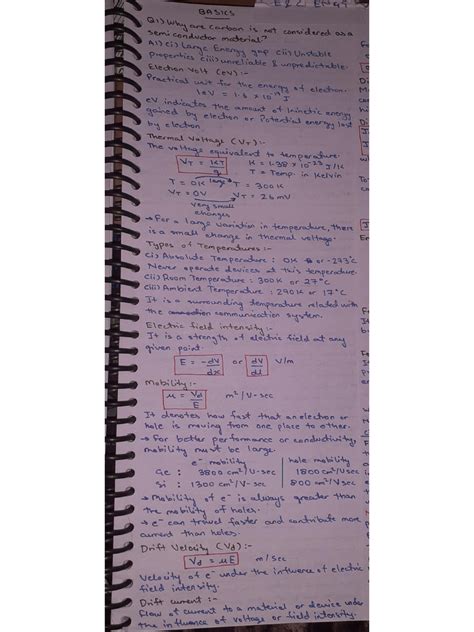 BASICS
Q1) Why are carbon is not considered as a
semiconductor material?
A1) (i) Large Energy gap (ii) Unstable
properties (iii) unreliable & unpredictable.
Electron Volt (eV) :-
Practical unit for the energy of electron.
1eV = 1.6 x 10⁻¹⁹ J
eV indicates the amount of kinetic energy
gained by electron or Potential energy lost
by electron.
Thermal Voltage (VT) :-
The voltage equivalent to temperature.
VT = KT/q K = 1.38 x 10⁻²³ J/K
T = Temp. in Kelvin
T = 0K large T = 300K
VT = 0V VT = 26mV
very small
changes
→ For a large variation in temperature, there
is a small change in thermal voltage.
Types of Temperatures :-
(i) Absolute Temperature : 0K or -273°C
Never operate devices at this temperature
(ii) Room Temperature : 300K or 27°C
(iii) Ambient Temperature : 290K or 17°C
It is a surrounding temperature related with
the communication system.
Electric field intensity :-
It is a strength of electric field at any
given point.
E = -dV/dx or dV/dl V/m
Mobility :-
μ = Vd/E m²/V-sec
It denotes how fast that an electron or
hole is moving from one place to other.
→ For better performance or conductivity,
mobility must be large.
e⁻ mobility hole mobility
Ge : 3800 cm²/V-sec 1800 cm²/Vsec
Si : 1300 cm²/V-sec 800 cm²/Vsec
→ Mobility of e⁻ is always greater than
the mobility of holes.
→ e⁻ can travel faster and contribute more
current than holes.
Drift Velocity (Vd) :-
Vd = μE m/sec
Velocity of e⁻ under the influence of electric
field intensity.
Drift current :-
Flow of current to a material or device under
the influence of voltage or field intensity.